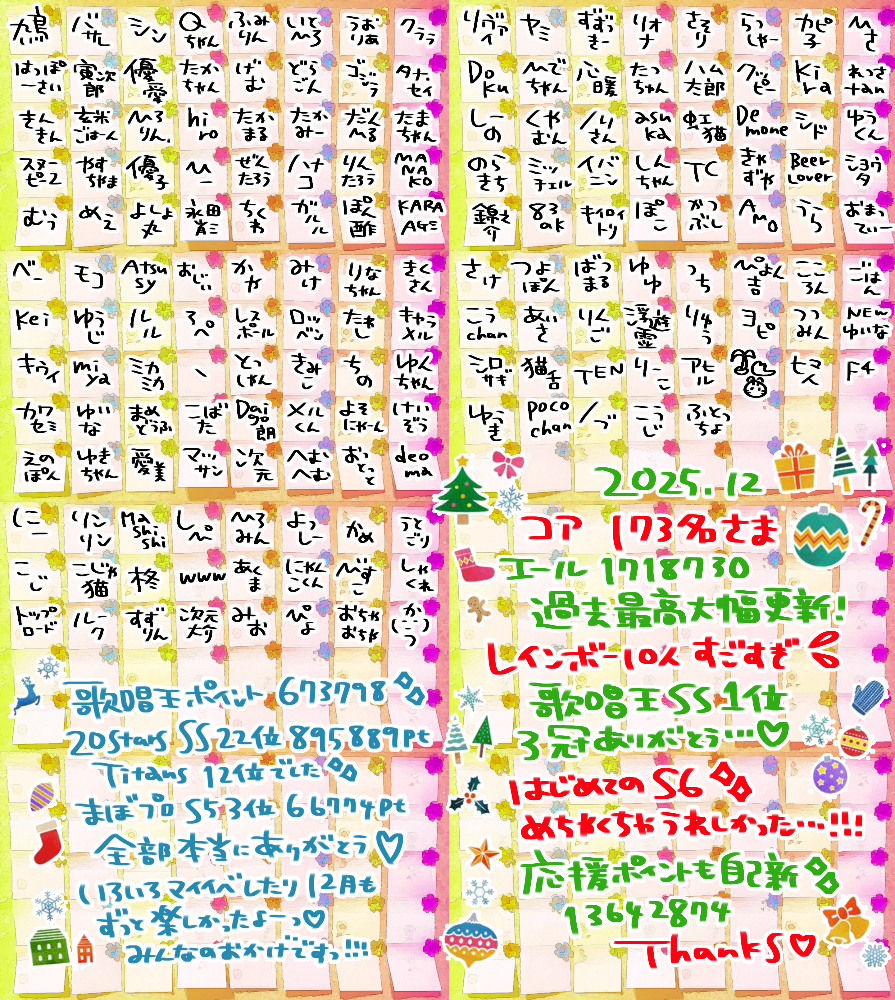 鳰 バサレ シン Qちゃん ふみりん いとひろ うおりあ クララ
はっぽーさい 寅次郎 優愛 たかちゃん げむ どらごん ゴジゴジ タナ。セイ
きんきん 玄米ごはーん ひろりん。 hiro たかまる たかみー だんひる たまちゃん
スヌーピース やすちやま 優子 ひー ぜんたろう ハナコ りんたろう MANAKO
むぅ めぇ よしょ丸 永田斉三 ちくわ ガルル ぽん酢 KARAAGE
リヴァイ ヤミ ずずっきー リオナ さそり らっしゃー カピ子 ひさ
Doku ひでちゃん 心暖 たっちゃん ハム太郎 グッピー Kira れっさtan
しーの くやむん ノリさん asuka 虹猫 Demone シド ゆうくん
のらきち ミッチェル イバニン しんちゃん TC きゃずや BeerLover ショウタ
錦之介 83のK キイロイトリ ぽこ かつぶし AMO うら おまってぃー
べー モコ Atsusy おじぃ かか みけ りなちゃん きくさん
Kei ゆうじ ルル ろぺ レスポール ロッベン たわし キャラメル
キウイ miya ミカミカ 丶 とっしゃん きみこ ちの ゆんちゃん
カワセミ ゆいな まめどうふ こばた Daigo朗 メルくん よそにゃーん けいぞう
えのぽん ゆきちゃん 愛美 マッサン 次元 へむへむ おっとっと deoma
さけ つよぽん ばつまる ゆゆ っち ぴよん吉 こころん ごはん
こうchan あいさ りんご 浮遊霊 りゅう ヨピ つつみん NEWゆいな
シロサギ 猫舌 TEN りーこ アヒル セマイ F4
ゆうき pocochan ノブ こうじ ふとっちょ
2025.12
にー リンリン Mashishi しぺ ひろみん よっしー かめ うとごり
こじ こじゃ猫 柊 www あくま にゃんこくん べすこ しゃくれ
トップロード ルーク すずりん 次元大介 みお ぴょ おちゃおちゃ か(--)っ
コア 173名さま
エール 1718730
過去最高大幅更新!
レインボー10人 すごすぎ
歌唱王SS1位
3冠ありがとう…♡
はじめてのS6
めちゃくちゃうれしかった…!!!
応援ポイントも自己新
13642874
Thanks♡
歌唱王ポイント 673798
20Stars SS22位 895889pt
Titans 12位でした
まぼプロ S53位 66774pt
全部本当にありがとう♡
いろいろマイイベしたり12月も
ずっと楽しかったよーっ♡
みんなのおかげですっ!!!